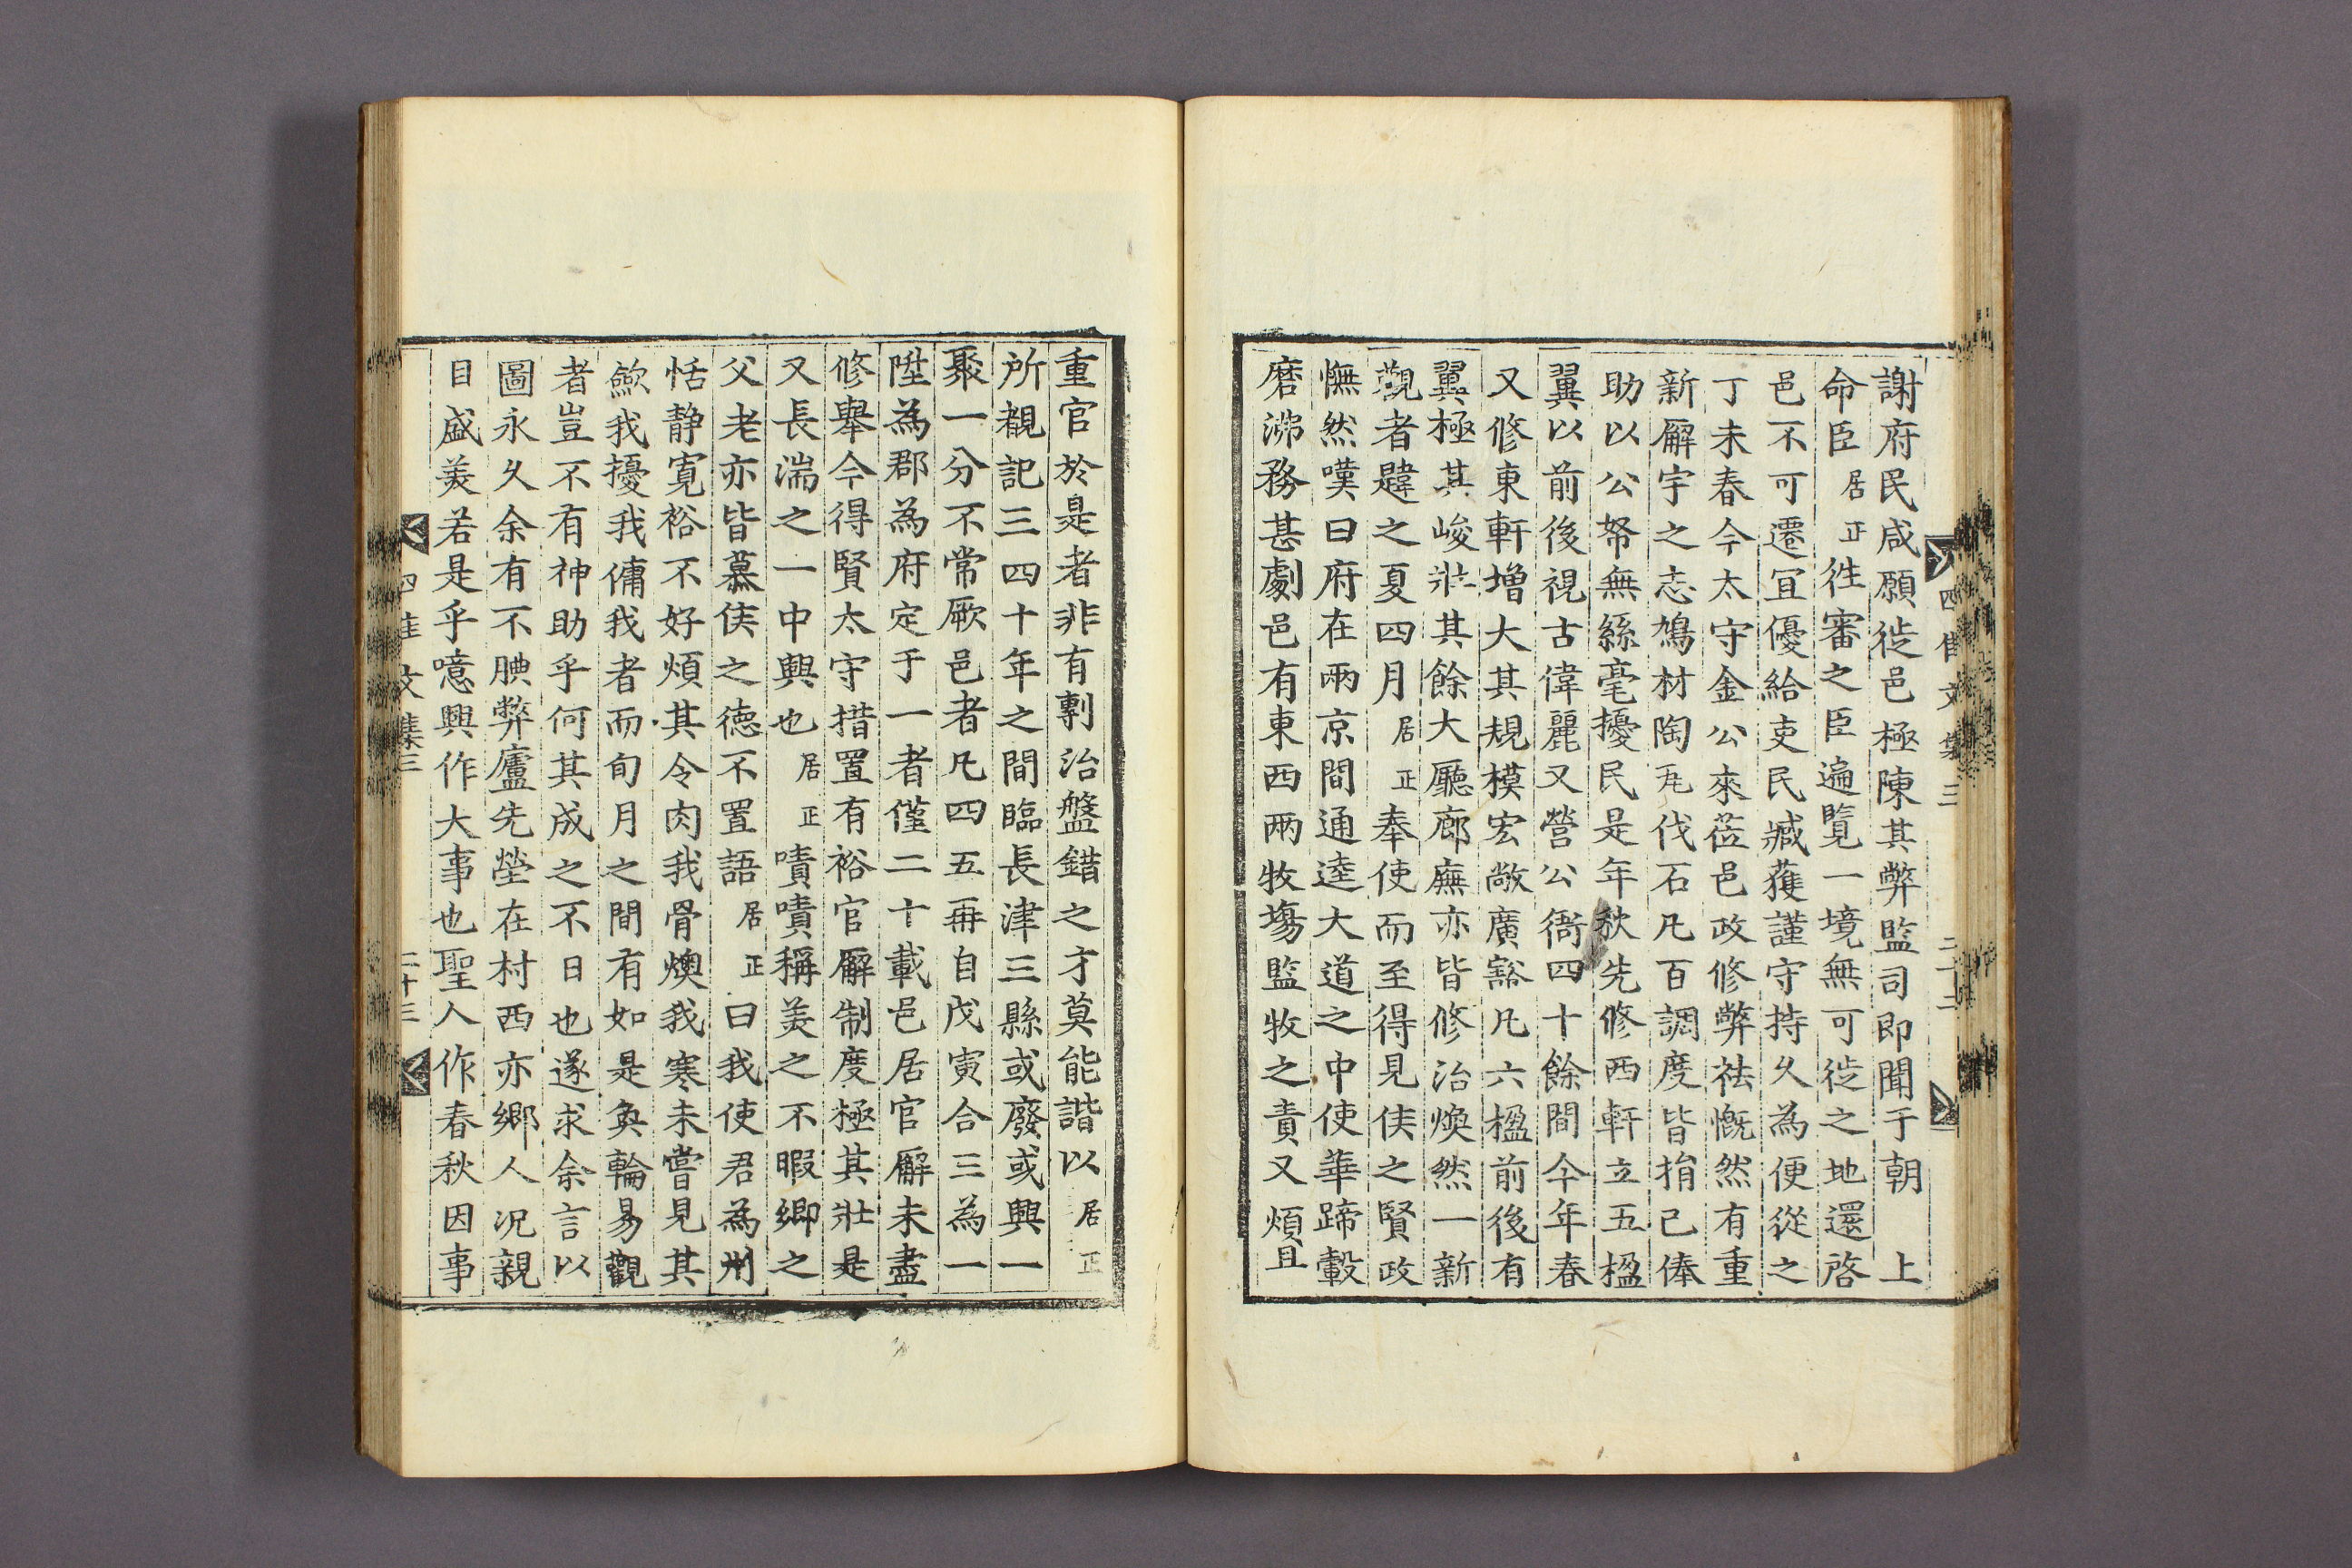 謝府民咸願徙邑極陳其弊監司即聞于朝 上
命臣居正徃審之臣遍覽一境無可徙之地還啓
邑不可遷冝優給吏民臧獲謹守持久為便從之
丁未春今太守金公來莅邑政修弊祛慨然有重
新廨宇之志鳩材陶瓦伐石凡百調度皆捐己俸
助以公帑無絲毫擾民是年秋先修西軒立五楹
翼以前後視古偉麗又營公衙四十餘間今年春
又修東軒增大其規模宏敞廣豁凡六楹前後有
翼極其峻壯其餘大廳廊廡亦皆修治煥然一新
觀者韙之夏四月居正奉使而至得見侯之賢政
憮然嘆曰府在兩京間通逵大道之中使華蹄轂
磨沸務甚劇邑有東西兩牧塲監牧之責又煩且
四佳文集三
二十二
重官於是者非有剸治盤錯之才莫能諧以居正
所覩記三四十年之間臨長津三縣或廢或興一
聚一分不常厥邑者凡四五再自戊寅合三為一
陞為郡為府定于一者僅二十載邑居官廨未盡
修舉今得賢太守措置有裕官廨制度極其壯是
又長湍之一中興也居正嘖嘖稱美之不暇鄉之
父老亦皆慕侯之德不置語居正曰我使君為州
恬静寛裕不好煩其令肉我骨燠我寒未嘗見其
歛我擾我傭我者而旬月之間有如是奐輪易觀
者豈不有神助乎何其成之不日也遂求余言以
圖永久余有不腆弊廬先塋在村西亦鄉人况親
目盛美若是乎噫興作大事也聖人作春秋因事
四佳文集三
二十三